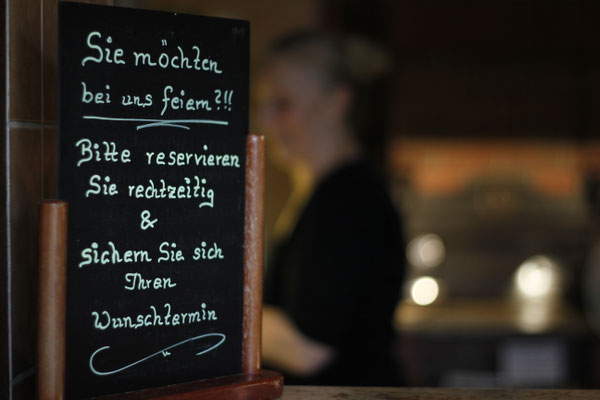 Sie möchten
bei uns feiern?!!
Bitte reservieren
Sie rechtzeitig
&
sichern Sie sich
Ihren
Wunschtermin